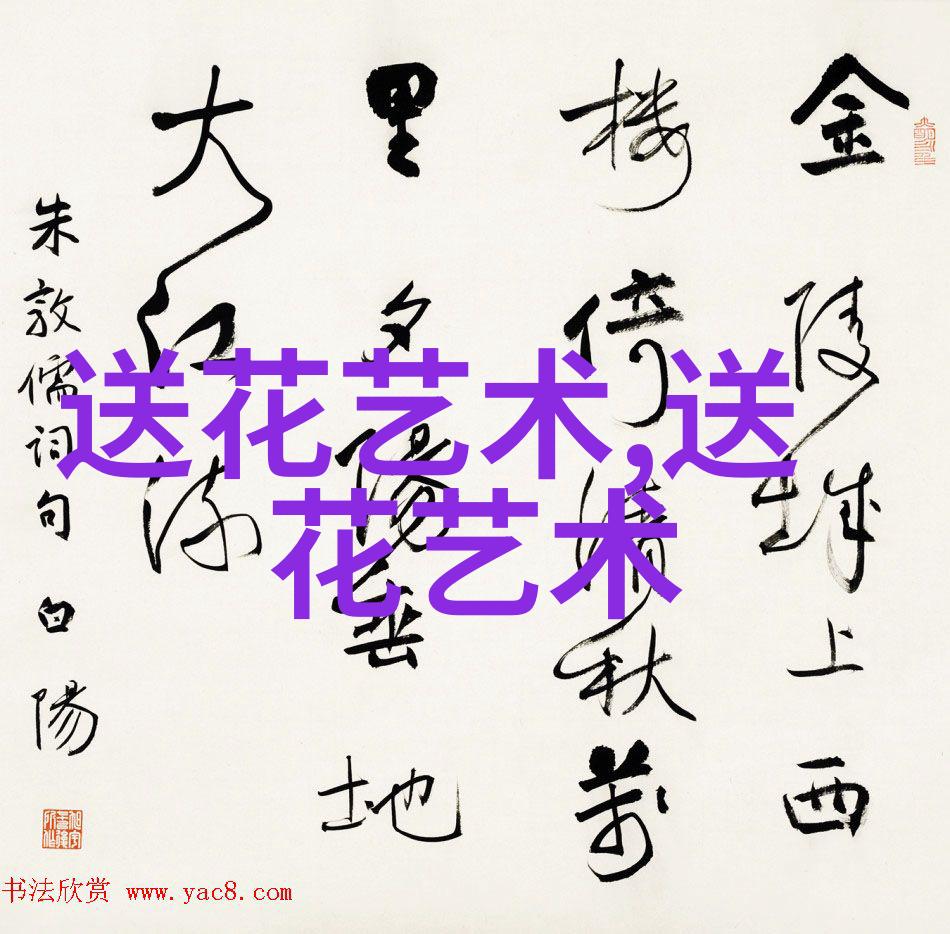 金陵城上西
楼倚清秋万
里夕阳垂地
大江流
朱敦儒词句 白陽
送花艺术,送
花艺术
书法欣赏 www.yac8.com